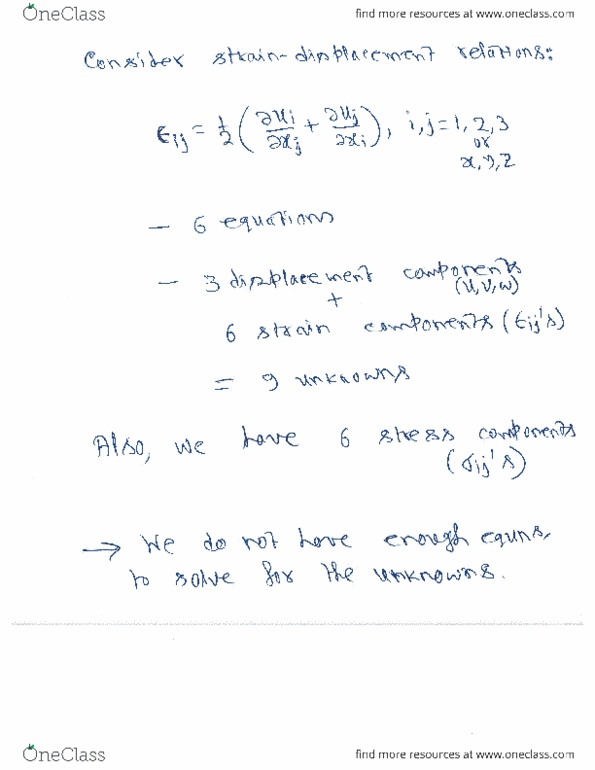 OneClass
find more resources at www.oneclass.com
Consider strain-displacement relations:
ϵij = 1/2 (∂ui/∂xj + ∂uj/∂xi), i,j = 1, 2, 3
or
x, y, z
– 6 equations
– 3 displacement components
(u, v, w)
+
6 strain components (ϵij's)
= 9 unknowns
Also, we have 6 stress components
(σij's)
→ We do not have enough equns.
to solve for the unknowns.
OneClass
find more resources at www.oneclass.com